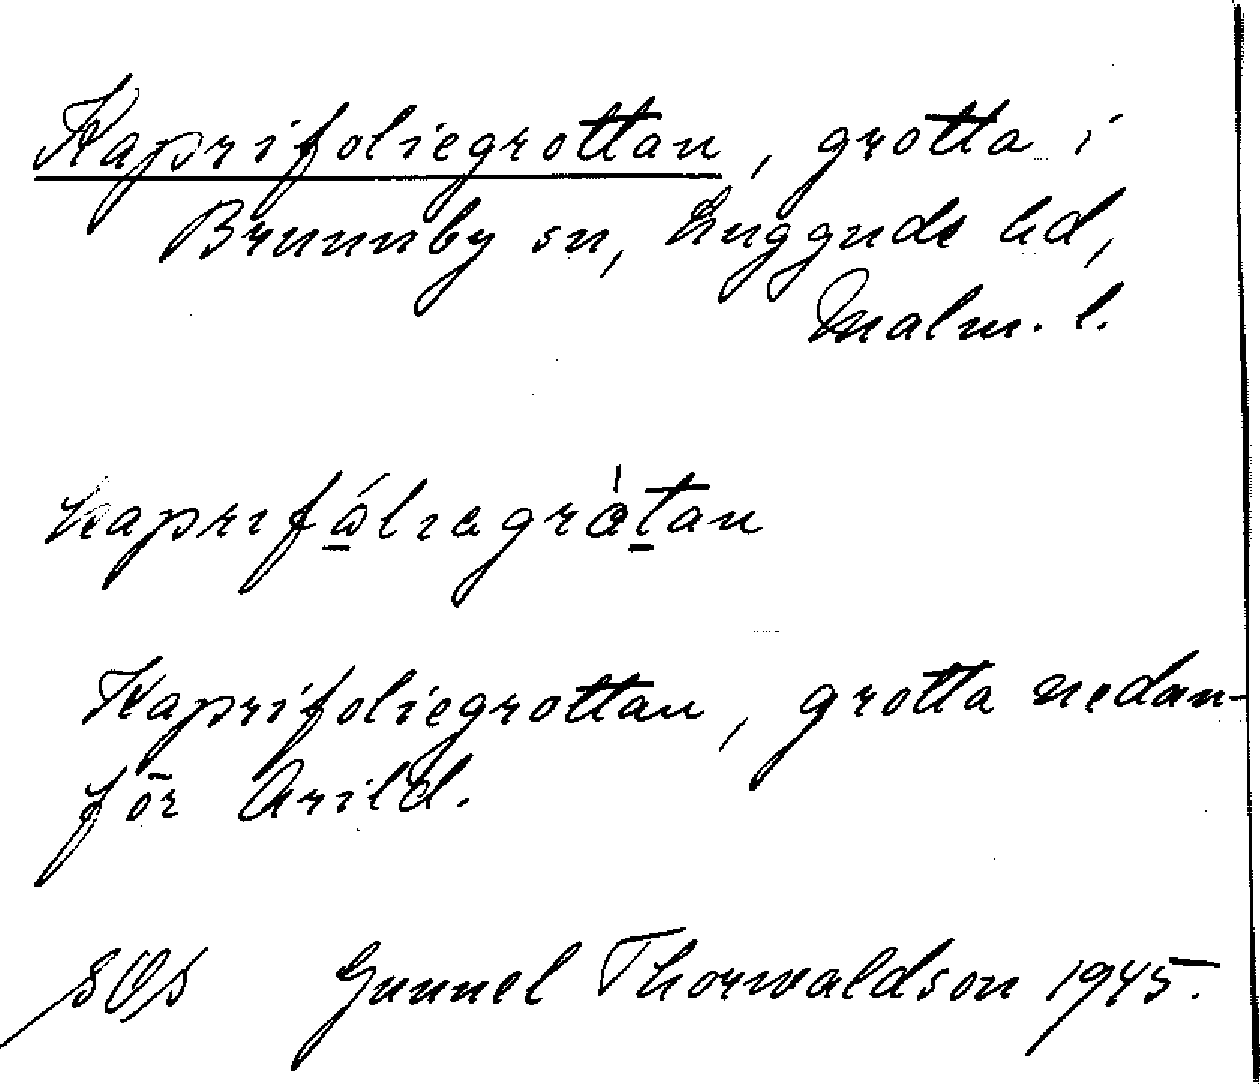 Kaprifoliegrottan, grotta i
Brunnby sn, Luggude hd,
Malm. l.
kaprifåliagråtan
Kaprifoliegrottan, grotta nedan-
för Arild.
Gunnel Thorwaldson 1945.